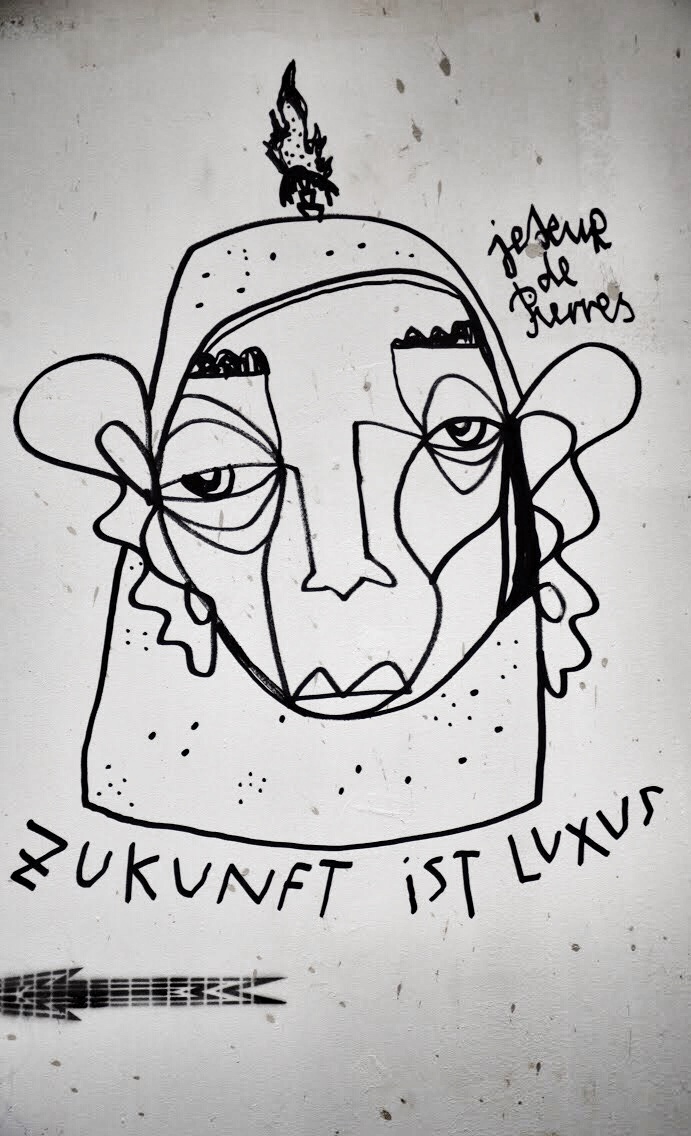 jeteur
de
Pierres
ZUKUNFT iST LUXUS